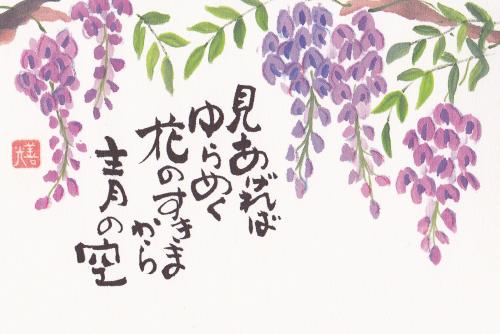 見あげれば
ゆらめく
花のすきま
から
青の空
善光